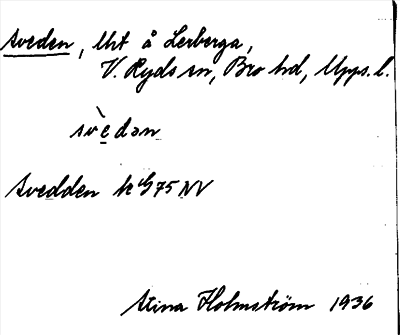 Sveden, Uht å Lerberga,
V. Ryds sn, Bro hd, Upps. l.
svèdan
Svedden kG 75 NV
Stina Holmström 1936